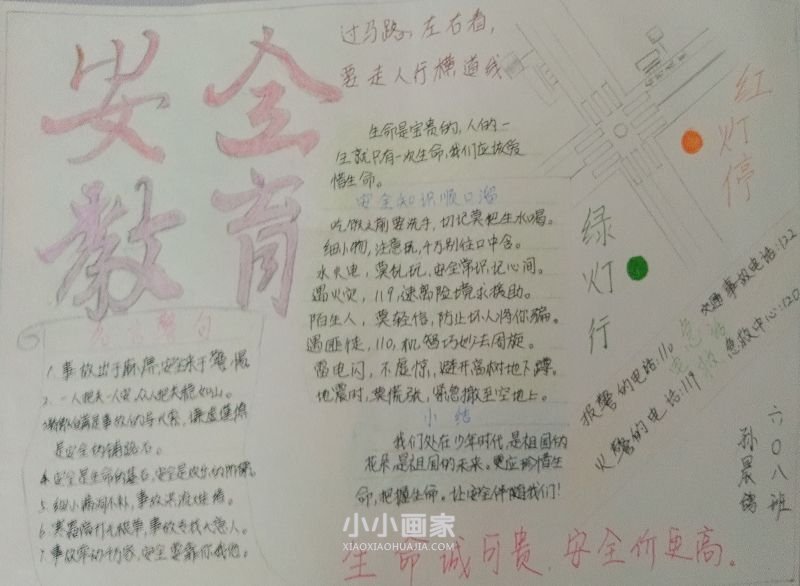 安全
教育
过马路，左右看，
要走人行横道线
红灯停
绿灯行
生命是宝贵的，人的一
生就只有一次生命，我们应该爱
惜生命。
安全知识顺口溜
吃饭之前要洗手，切记莫把生水喝。
细小物，注意玩，千万别往口中含。
水火电，莫玩玩，安全常识记心间。
遇火灾，119，速离险境求援助。
陌生人，莫轻信，防止坏人将你骗。
遇匪徒，110，机智巧妙去周旋。
雷电闪，不屋惊，避开高树地下蹲。
地震时，莫慌张，紧急撤至空地上。
小结
我们处在少年时代，是祖国的
花朵，是祖国的未来。更应珍惜生
命，把握生命。让安全伴随我们！
名 警句
1. 事故出于麻痹，安全来于警惕
2. 一人把关一人安，众人把关稳如山。
是安全的铺路石。
4. 安全是生命的基石，安全是欢乐的阶梯。
5. 细小漏洞不补，事故洪流难堵。
6. 寒霜偏打无根草，事故专找大意人。
7. 事故牵动千万家，安全要靠你我他。
交通事故电话：122
急救中心：120
报警的电话：110
火警的电话：119
急救
电话
六〇八班
孙晨
生命诚可贵，安全价更高。
小小画家
XIAOXIAOHUAJIA.COM